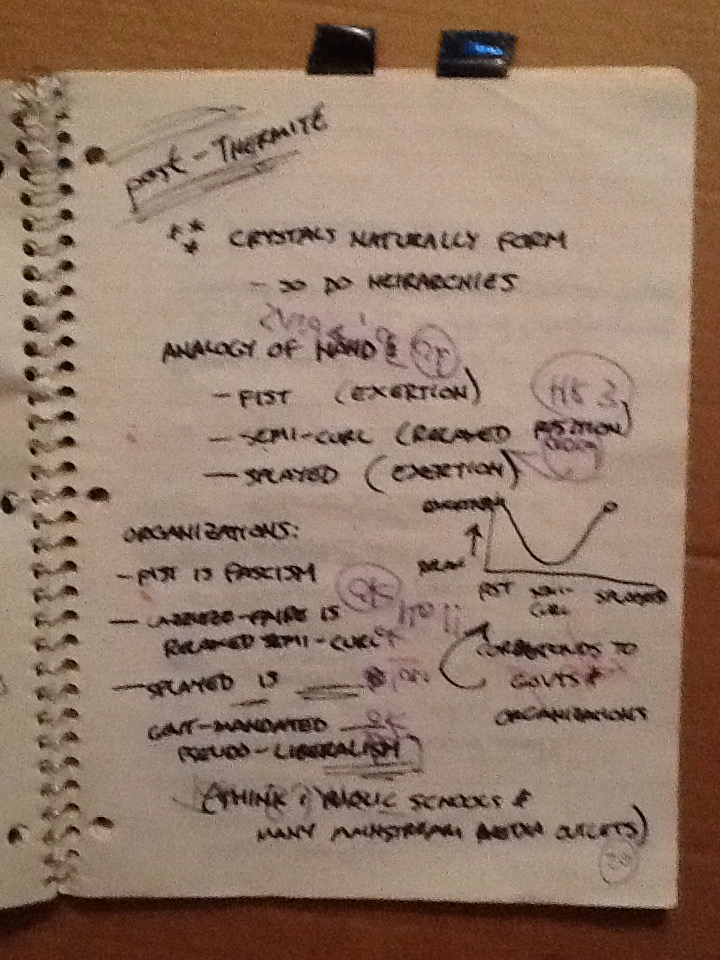 post-THERMITE
** * CRYSTALS NATURALLY FORM
- SO DO HEIRARCHIES
ANALOGY OF HAND:
- FIST (EXERTION)
- SEMI-CURL (RELAXED POSITION)
- SPLAYED (EXERTION)
ORGANIZATIONS:
- FIST IS FASCISM
- LAZZEZE-FAIRE IS
RELAXED SEMI-CURL
- SPLAYED IS
GOVT-MANDATED
PSEUDO-LIBERALISM
(THINK: PUBLIC SCHOOLS &
MANY MAINSTREAM MEDIA OUTLETS)
EXERTION
RELAX
FIST SEMI-CURL SPLAYED
CORRESPONDS TO
GOVTS &
ORGANIZATIONS